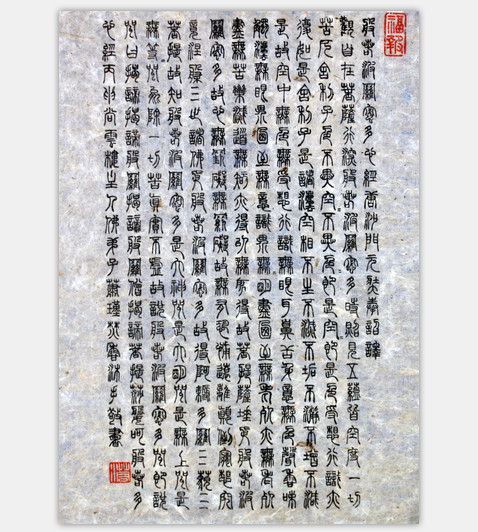 福報
般若波羅蜜多心經唐沙門玄奘奉詔譯
觀自在菩薩行深般若波羅蜜多時照見五蘊皆空度一切
苦厄舍利子色不異空〻不異色〻即是空〻即是色受想行識亦
復如是舍利子是諸法空相不生不滅不垢不淨不增不減
是故空中無色無受想行識無眼耳鼻舌身意無色聲香味
觸法無眼界乃至無意識界無明盡乃至無老死亦無老死
盡無苦集滅道無智亦無得以無所得故菩提薩埵依般若波
羅蜜多故心無罣礙無罣礙故無有恐怖遠離顛倒夢想究
竟涅槃三世諸佛依般若波羅蜜多故得阿耨多羅三藐三
菩提故知般若波羅蜜多是大神咒是大明咒是無上咒是
無等咒能除一切苦真實不虛故說般若波羅蜜多咒即說
咒曰揭諦揭諦波羅揭諦波羅僧揭諦菩提薩婆訶般若多
心經丙申雲樓主人佛弟子蕭瑾焚香沐手敬書